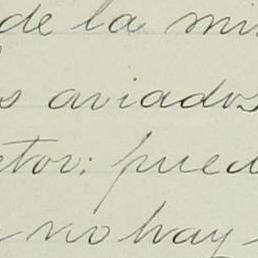 de la mi
s aviados
tor: pued
no hay